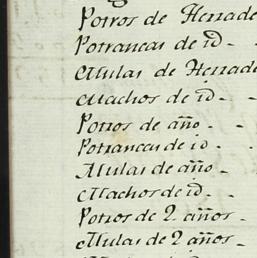 Potros de Herrade
Potrancas de iD -
Mulas de Herrade
Machos de iD -
Potros de año -
Potrancas de iD -
Mulas de año -
Machos de iD -
Potros de 2 años -
Mulas de 2 años -